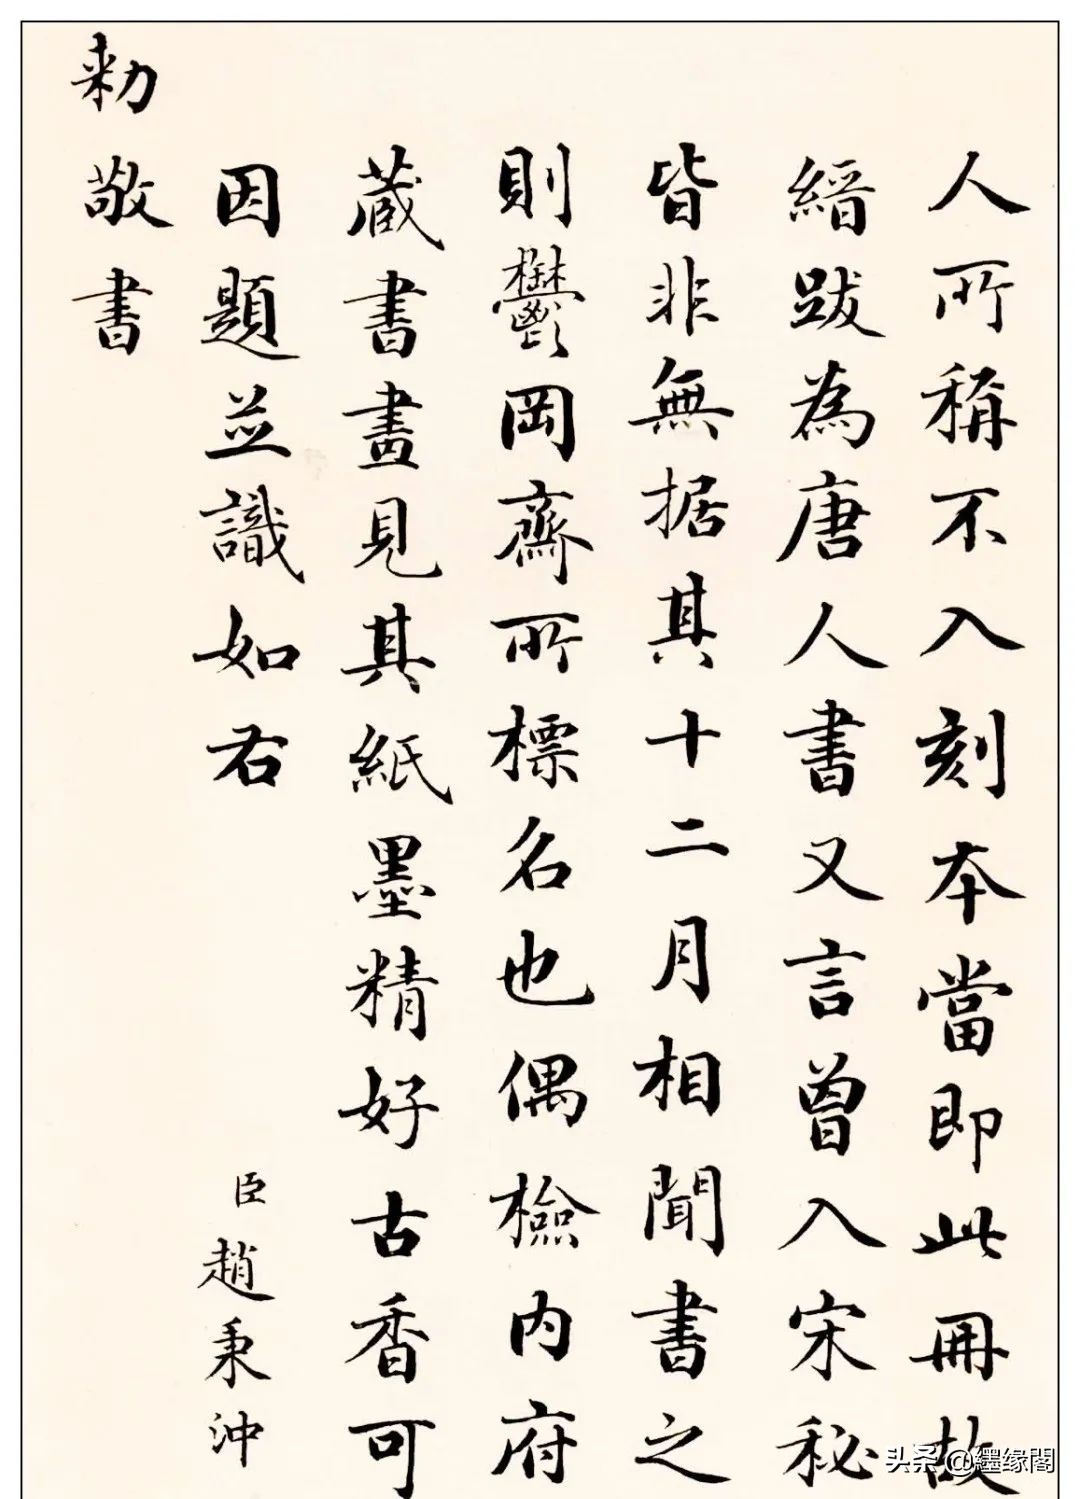 人所稱不入刻本當即此冊故
縉跋為唐人書又言曾入宋秘
皆非無据其十二月相聞書之
則鬱岡齋所標名也偶檢內府
藏書畫見其紙墨精好古香可
因題並識如右
臣趙秉沖
勑敬書
头条 @纆缘閣